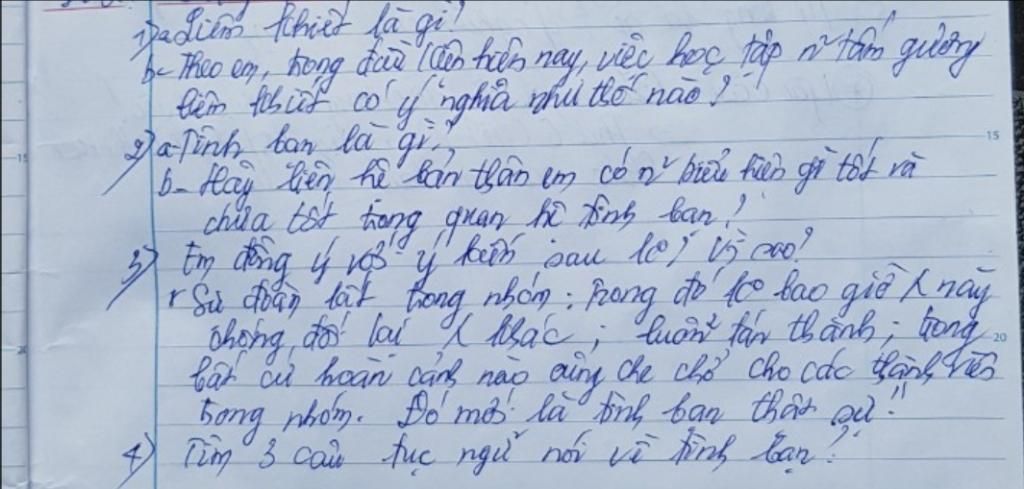 1) a. Liêm khiết là gì?
b- Theo em, trong điều kiện hiện nay, việc học tập n² tấm gương
liêm khiết có ý nghĩa như thế nào?
2) a- Tình bạn là gì?
b- Hãy liên hệ bản thân em có n² biểu hiện gì tốt và
chưa tốt trong quan hệ tình bạn?
3) Em đồng ý với ý kiến sau ko? Vì sao?
Sự đoàn kết trong nhóm: trong đó ko bao giờ này
chống đối lại khác; luôn² tán thành; trong
bất cứ hoàn cảnh nào cũng che chở cho các thành viên
trong nhóm. Đó mới là tình bạn thật sự."
4) Tìm 3 câu tục ngữ nói về tình bạn?